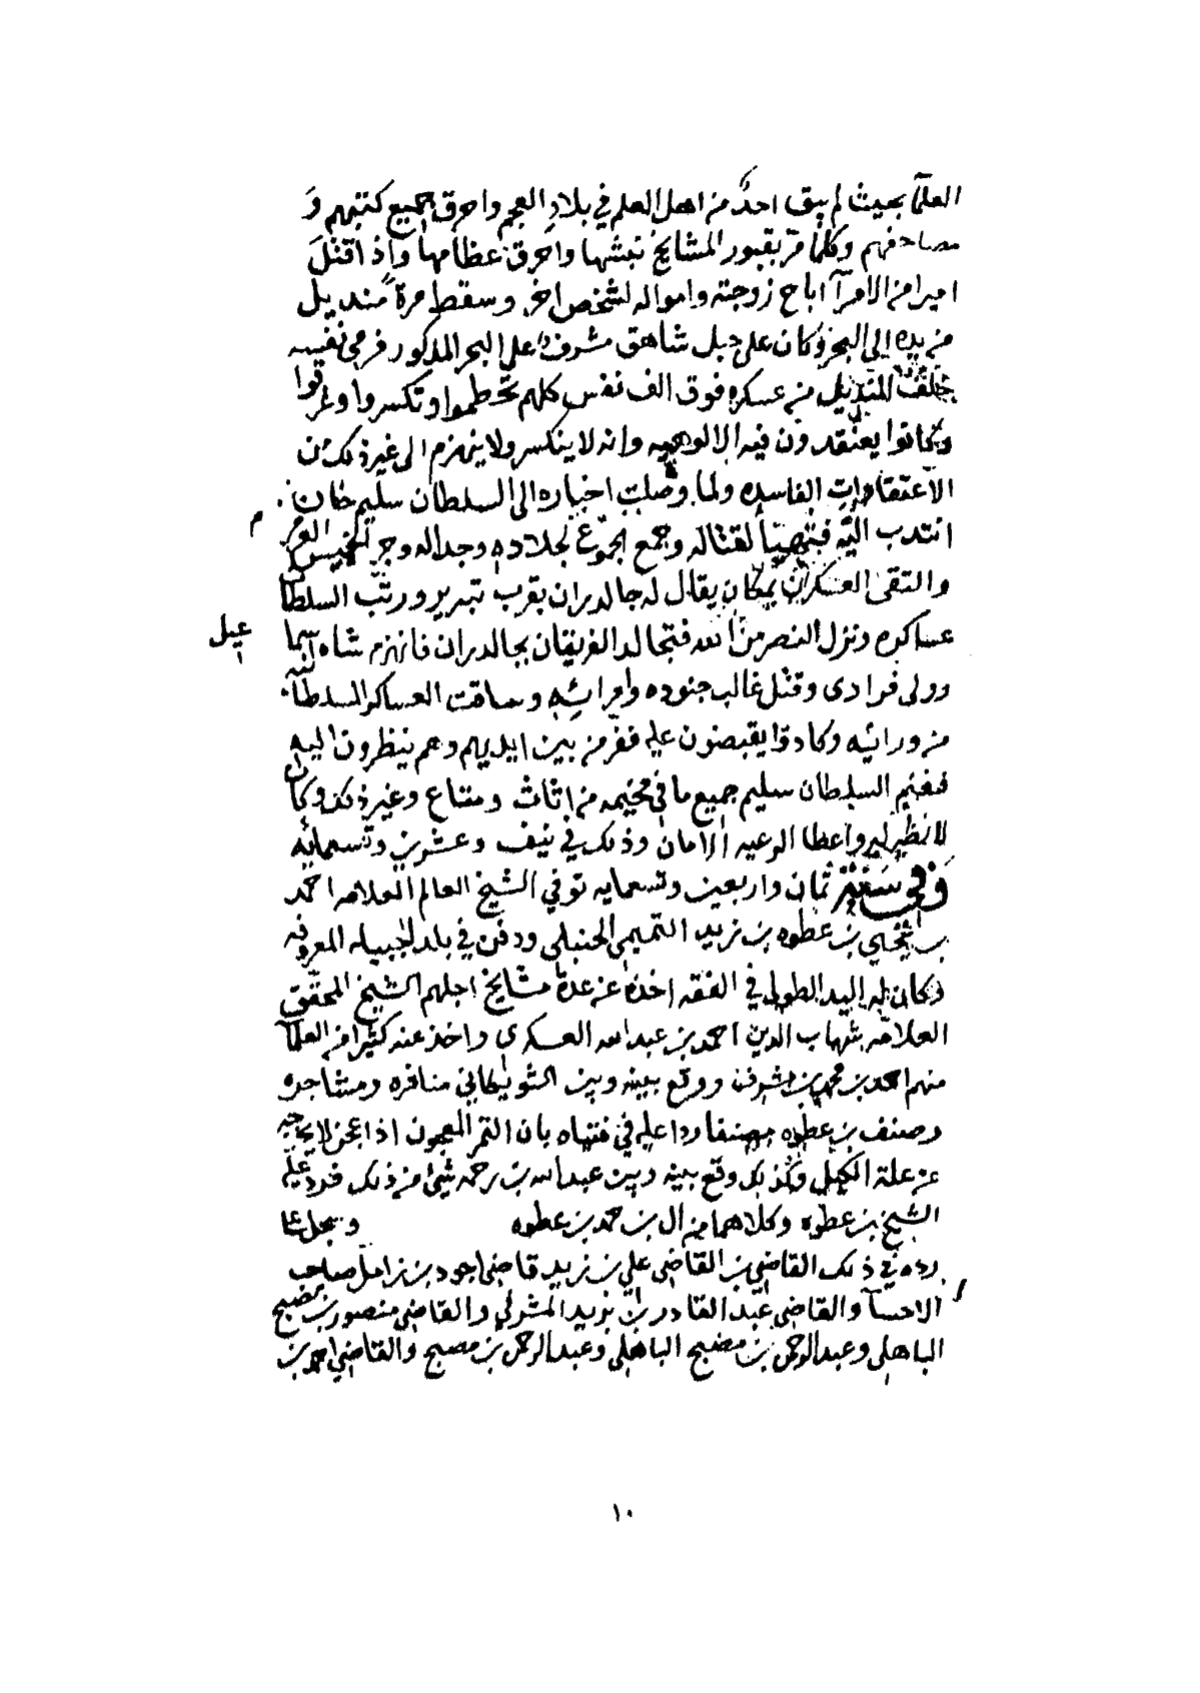 العلمآ بحيث لم يبق احدٌ من اهل العلم في بلاد العجم واحرق جميع كتبهم وَ
مصاحفهم وكلما مر بقبور المشايخ نبشها واحرق عظامها واذا قتلَ
اميرا من الامرآ اباح زوجته وامواله لشخص اخر وسقط مرة منديل
من يده الى البحر وكان على جبل شاهق مشرف على البحر المذكور فرمى نفسه
خلف المنديل من عسكره فوق الف نفس كلهم تحطموا وتكسروا وغرقوا
وكانوا يعتقدون فيه الالوهيه وانه لا ينكسر ولا ينهزم الى غير ذلك من
الاعتقادات الفاسده ولما وصلت اخباره الى السلطان سليم خان
انتدب اليه فتهيأ لقتاله وجمع الجموع لجلاده وجداله وجر الخميس العرمرم
والتقى العسكران بمكان يقال له جالدران بقرب تبريز ورتب السلطان
عساكره ونزل النصر من الله فتجالد الفريقان بجالدران فانهزم شاه اسماعيل
وولى فرادى وقتل غالب جنوده وامرائه وساقت العساكر السلطانيه
من ورائيه وكادوا يقبضون عليه ففر من بين ايديهم وهم ينظرون اليه
فغنم السلطان سليم جميع ما في مخيمه من اثاث ومتاع وغير ذلك وكان
لا نظير له واعطا الرعيه الامان وذلك في نيف وعشرين وتسعمائه
وَفي سنة ثمان واربعين وتسعمايه توفي الشيخ العالم العلامه احمد
بن يحيي بن عطوه بن زيد التميمي الحنبلي ودفن في بلد الجبيله المعروفه
وكان له اليد الطولى في الفقه اخذه عن عدة مشايخ اجلهم الشيخ المحقق
العلامه شهاب الدين احمد بن عبد الله العسكرى واخذ عنه كثير من العلمآ
منهم احمد بن محمد بن مشرف ووقع بينه وبين الشويكاني منافره ومشاجره
وصنف بن عطوه مصنفا ردا عليه في فتياه بان التمر المعجون اذا عجن لا يخرجه
عن علة الكيل وكذلك وقع بينه وبين عبد الله بن رحمه شيئ من ذلك فرد عليه
الشيخ بن عطوه وكلاهما من ال بن حمد بن عطوه وسجل على
رده في ذلك القاضي بن القاضي علي بن زيد قاضي اجود بن زامل صاحب
الاحسآ والقاضي عبد القادر بن بريد المشرفي والقاضي منصور بن مصبح
الباهلي وعبد الرحمن بن مصبح الباهلي وعبد الرحمن بن مصبح والقاضي احمد بن
١٠